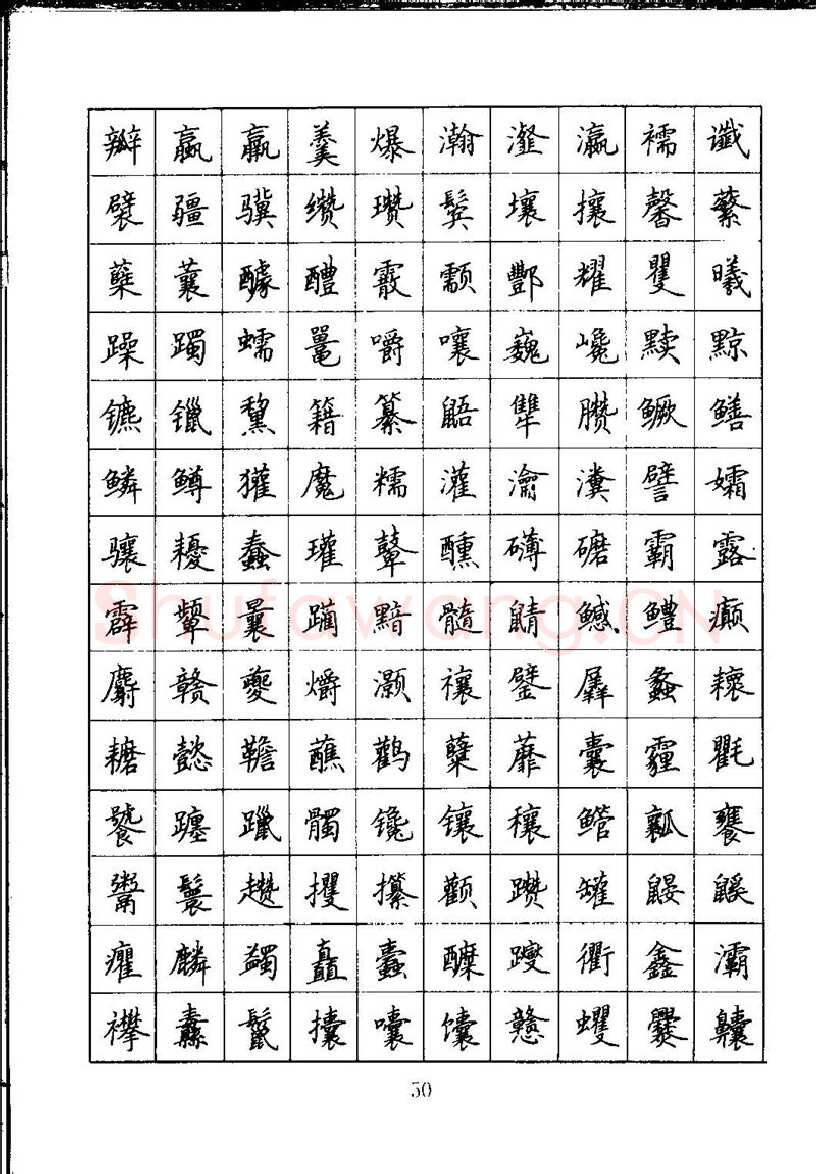 瓣赢羸羹爆瀚瀣瀛襦谶
襞疆骥缵瓒鬓壤攘馨蘩
蘖蘘醵醴霰颥酆耀矍曦
躁躅蠕鼍嚼嚷巍巉黩黥
镳镴黧籍纂鼯犨臜鳜鳝
鳞鳟獾魔糯灌瀹瀵譬孀
骧耰蠢瓘鼙醺礴礳霸露
霹颦曩躏黯髓鼱鳡鳢癫
麝赣夔爝灏禳鐾羼蠡耲
耱懿韂蘸鹳糵蘼囊霾氍
饕躔躐髑镵镶穰鳤瓤饔
鬻鬟趱攫攥颧躜罐鼹鼷
癯麟蠲矗蠹醾躞衢鑫灞
襻纛鬣攮囔馕戆蠼爨齉
50
Shufawang.CN